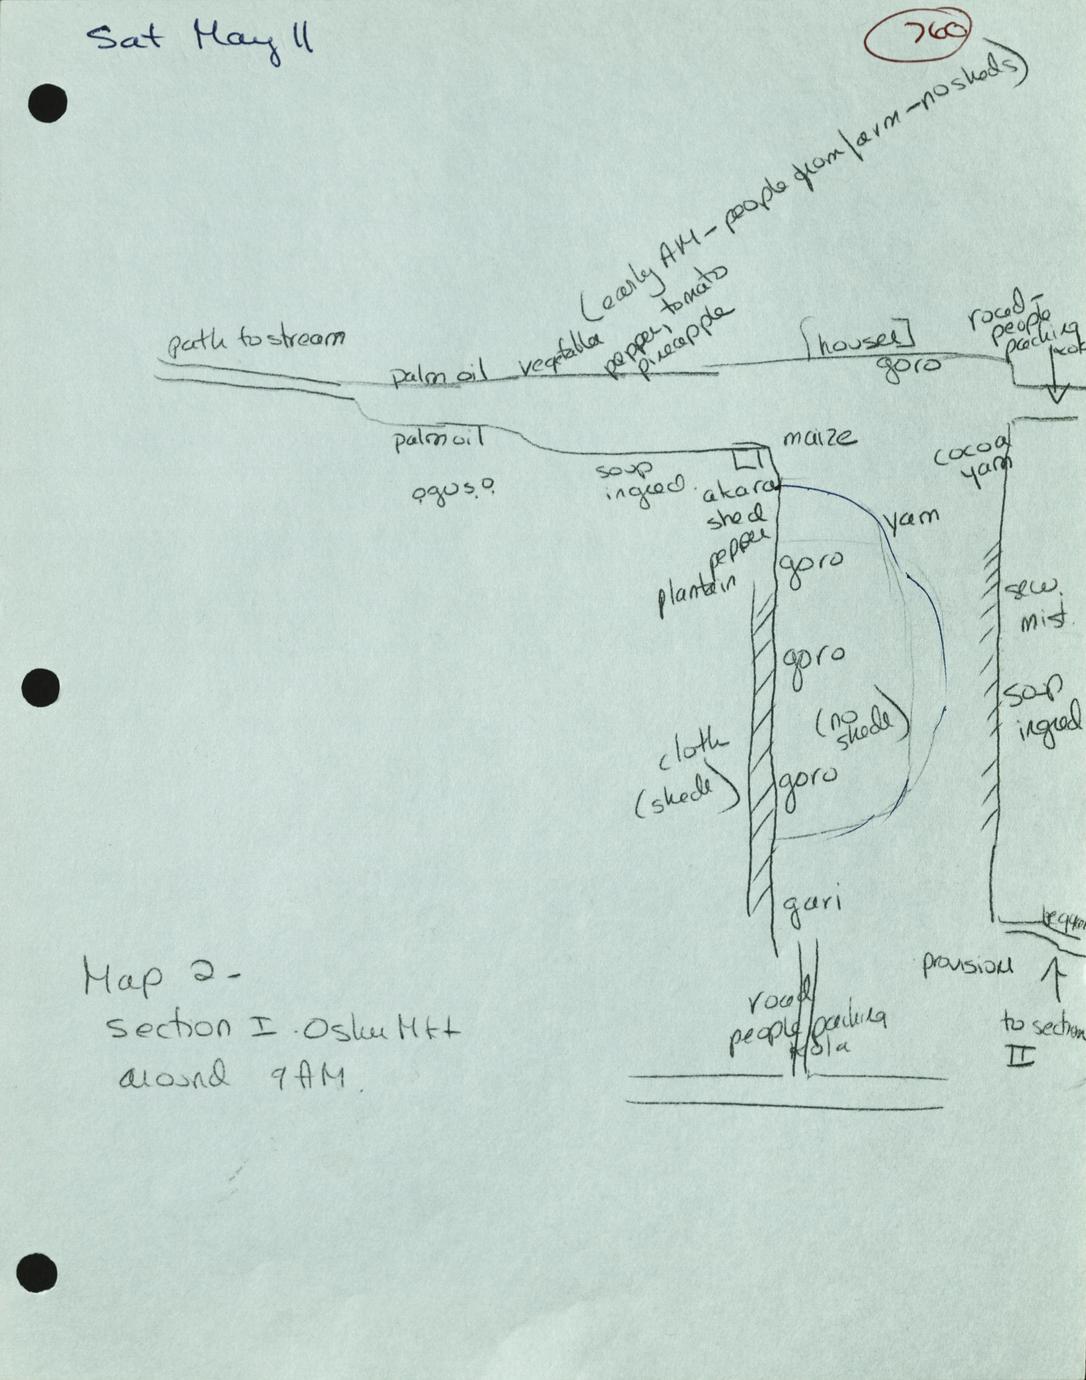 Sat May 11
760
(early AM - people from farm - no sheds)
path to stream
palm oil
vegetable
pepper, tomato
pineapple
[houses]
goro
road -
people
packing
palm oil
ogusi
soup
ingred.
maize
akara
shed
pepper
plantain
cocoa
yam
yam
goro
goro
goro
(no
sheds)
cloth
(sheds)
sew.
mist.
soup
ingred
gari
provisions
to section
II
road
people packing
kola
Map 2 -
section I Oshu Mkt
around 9 AM.